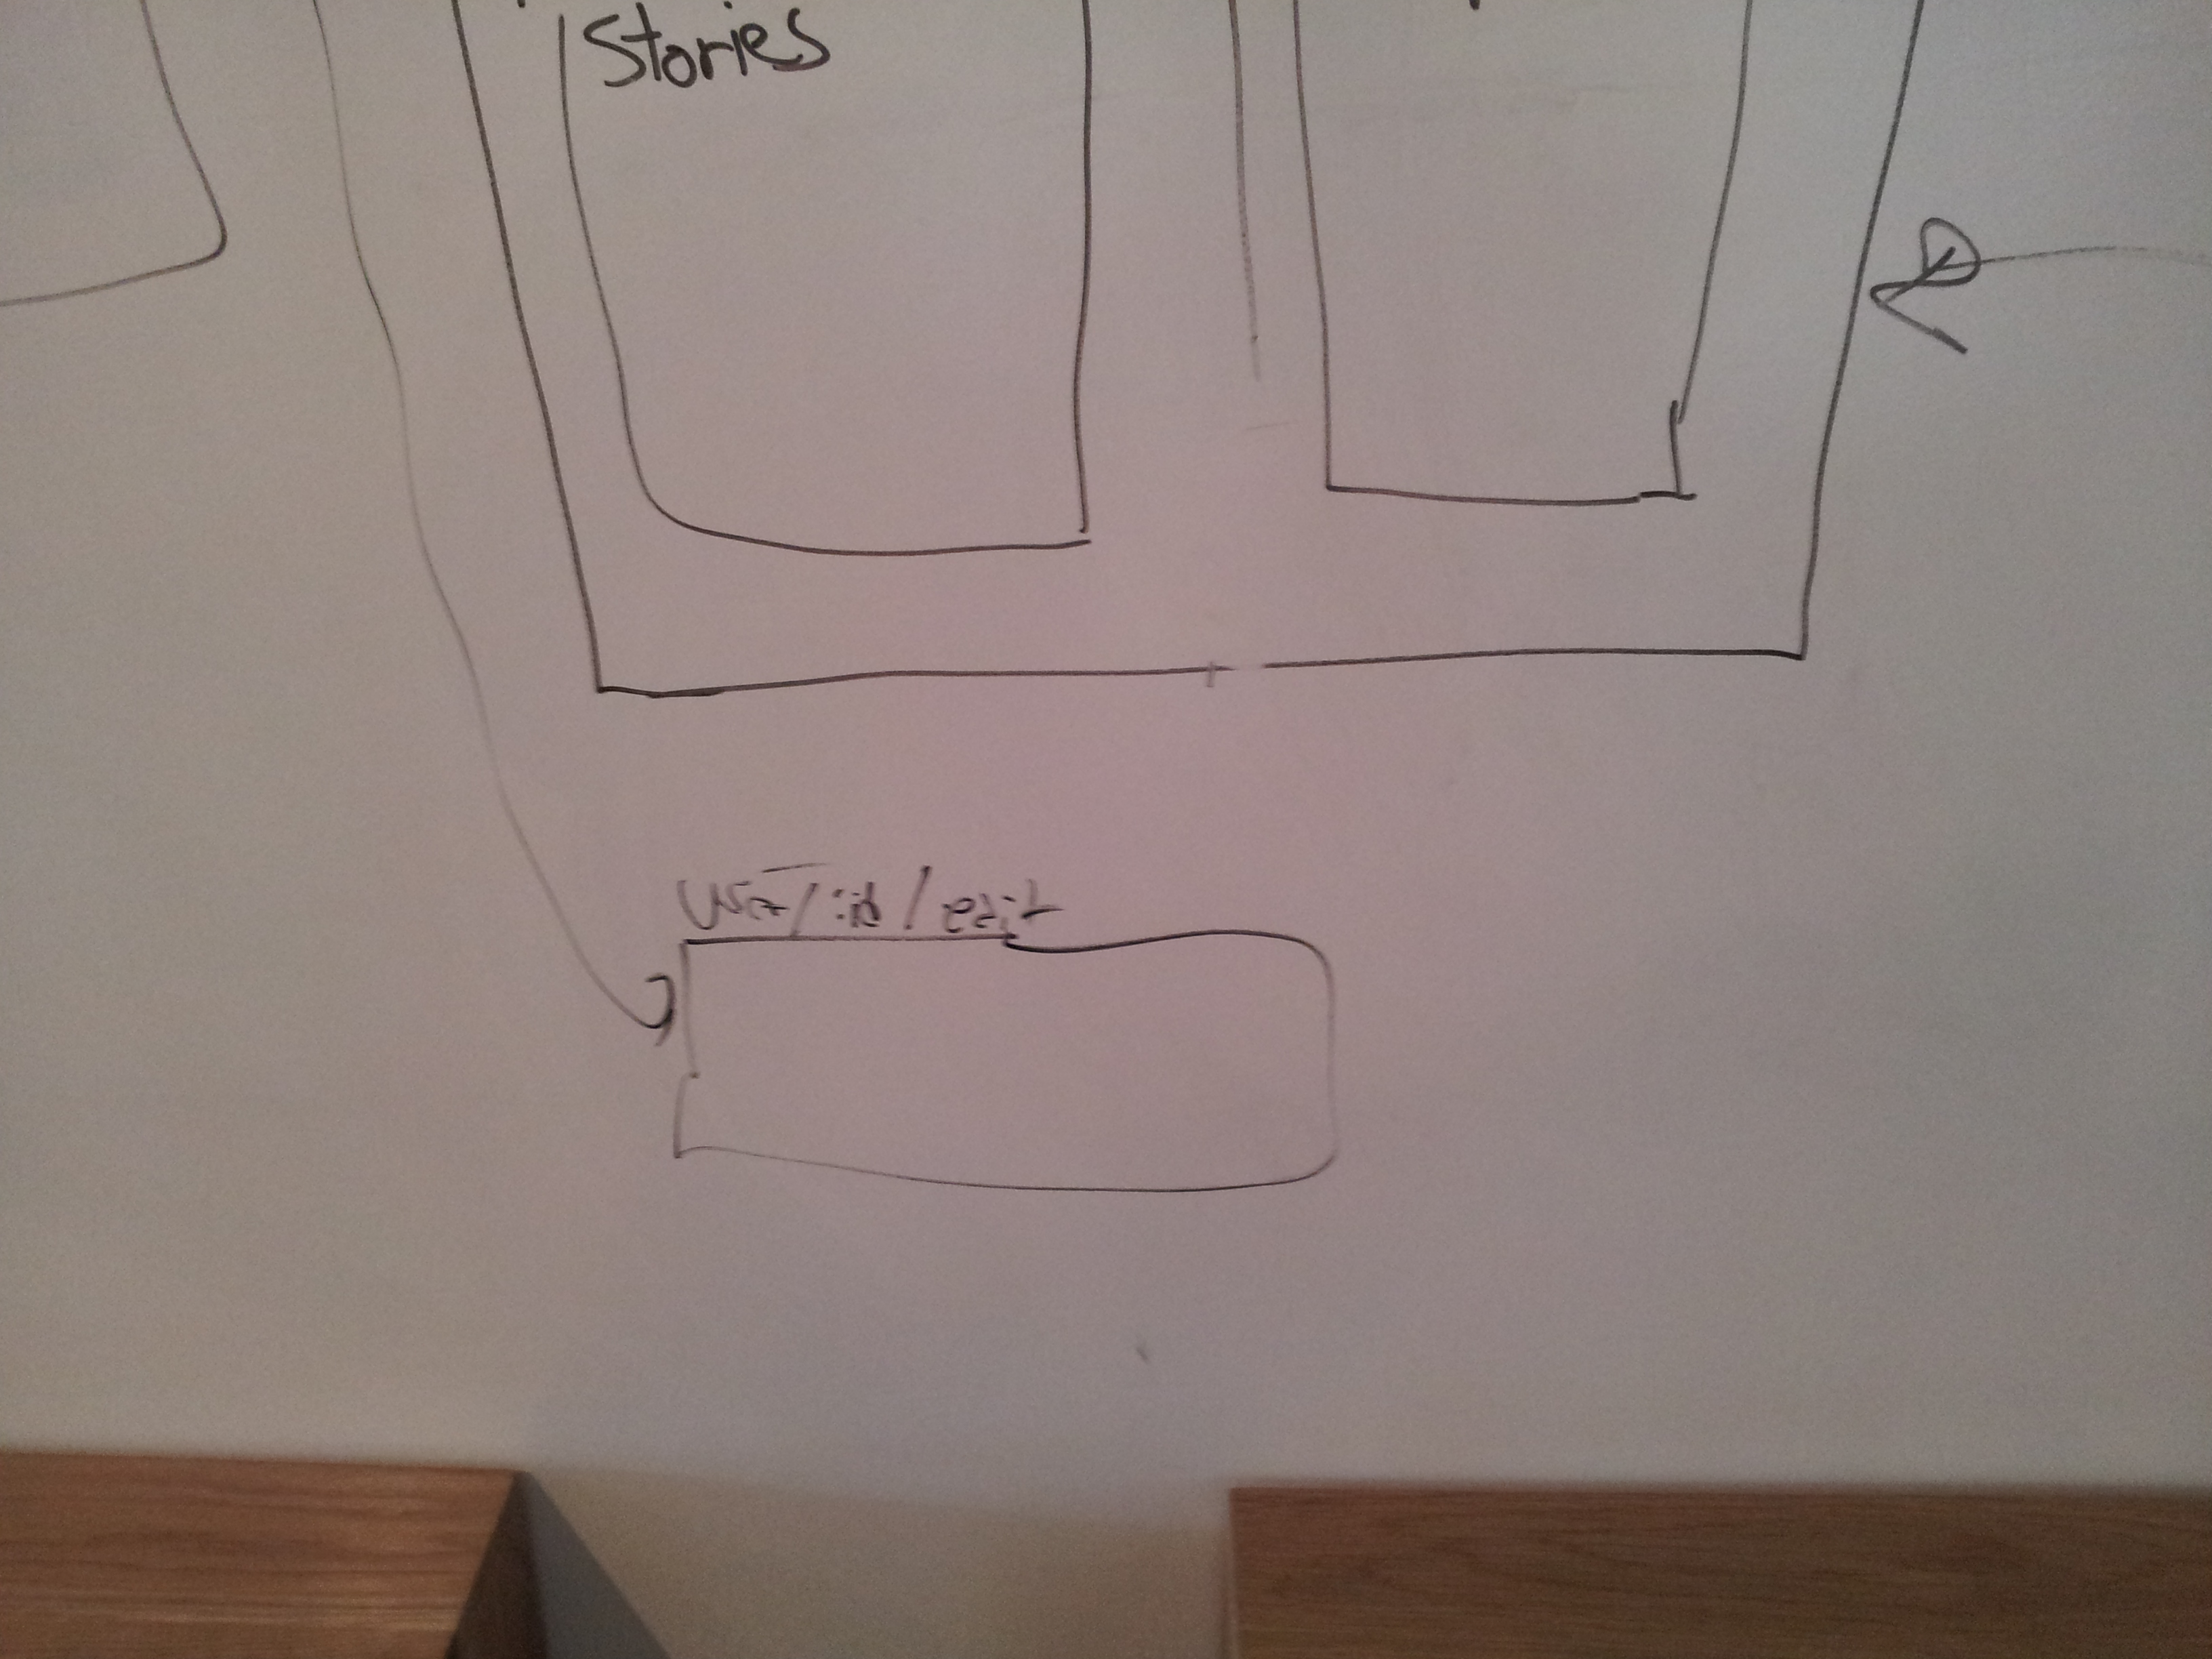 Stories
user/:id/edit